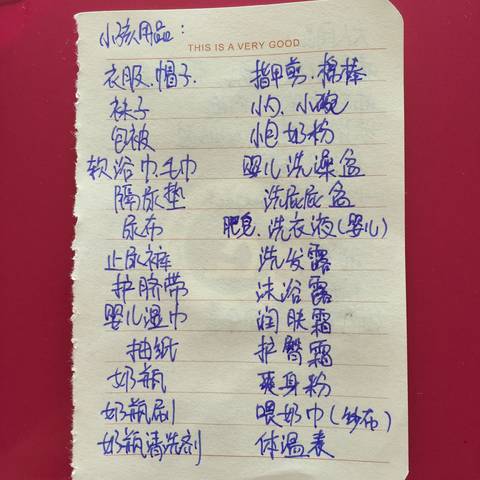 小孩用品：
THIS IS A VERY GOOD
衣服、帽子、 指甲剪、棉棒
袜子 小勺、小碗
包被 小包奶粉
软浴巾、毛巾 婴儿洗澡盆
隔尿垫 洗屁屁盆
尿布 肥皂、洗衣液(婴儿)
止尿裤 洗发露
护脐带 沐浴露
婴儿湿巾 润肤霜
抽纸 护臀霜
奶瓶 爽身粉
奶瓶刷 喂奶巾(纱布)
奶瓶清洗剂 体温表